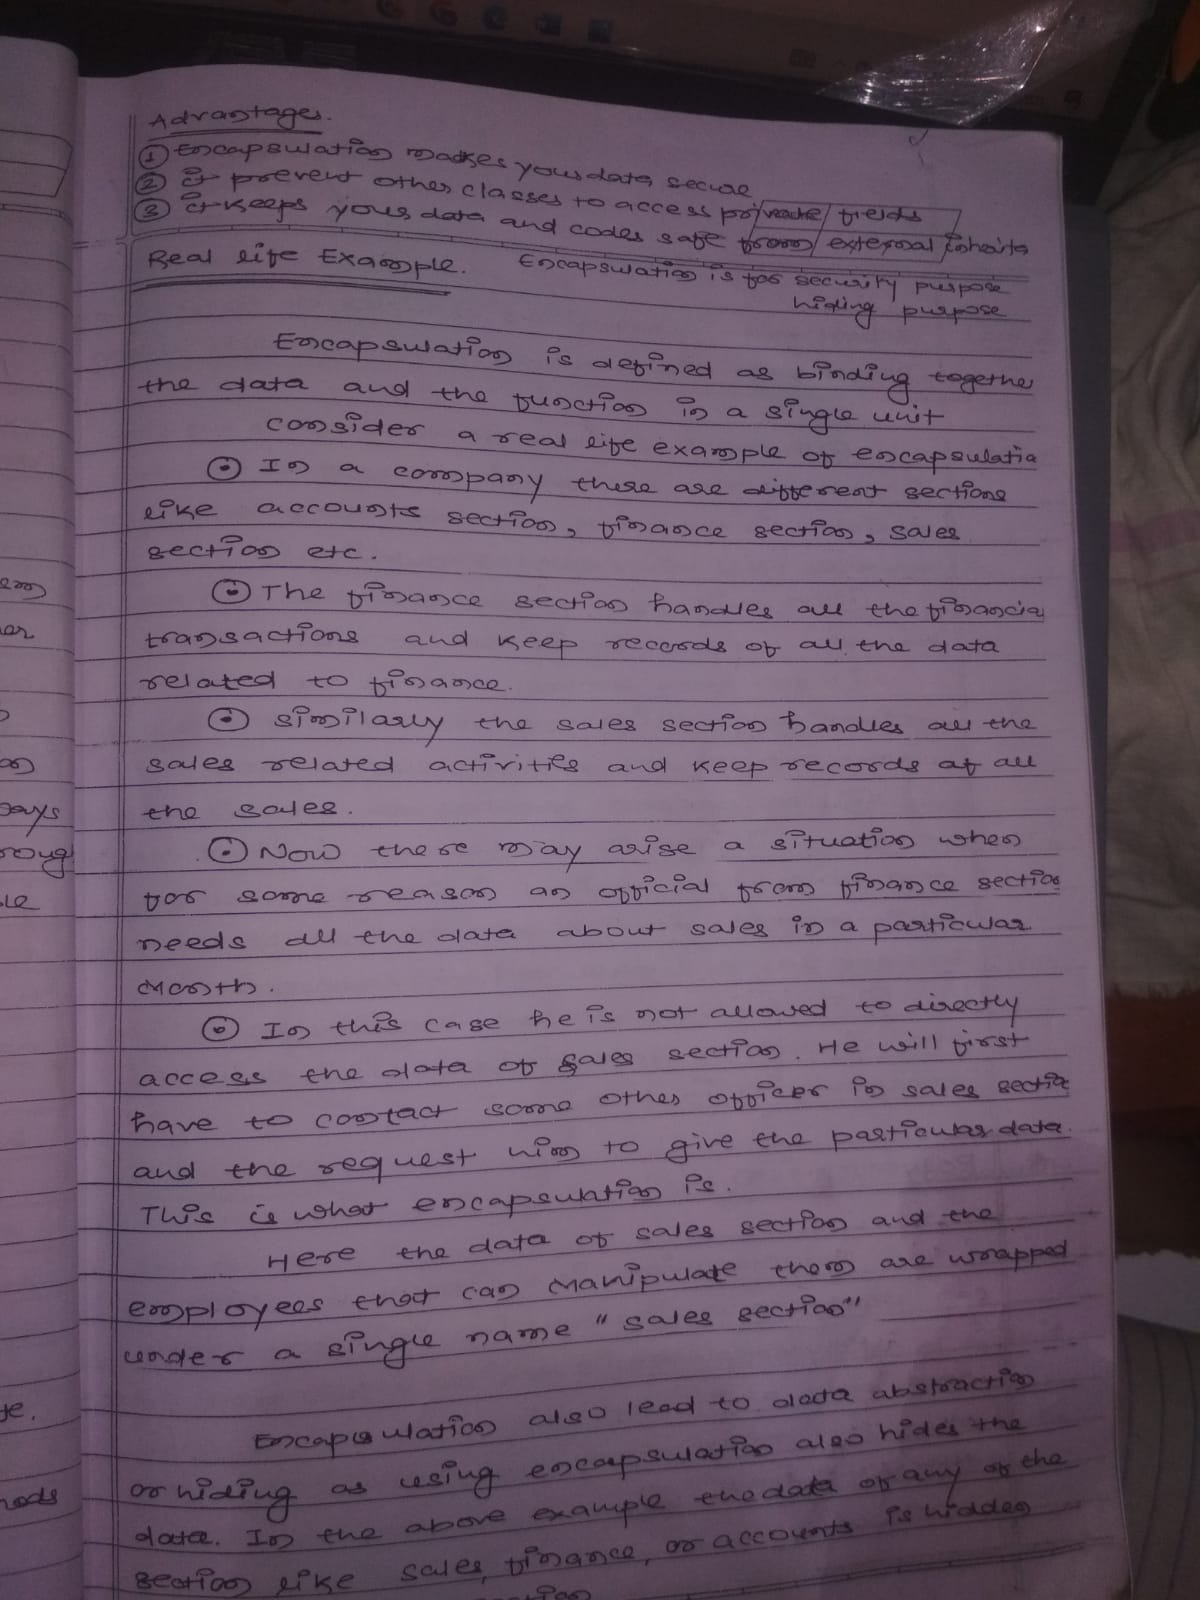 Advantages.
① Encapsulation makes your data secure
② it prevent other classes to access private fields
③ it keeps your data and codes safe from external inherita
Real life Example. Encapsulation is for security purpose
hiding purpose
Encapsulation is defined as binding togethe
the data and the function in a single unit
consider a real life example of encapsulatio
⊙ In a company there are different sections
like accounts section, finance section, sales
section etc.
⊙ The finance section handles all the financia
transactions and keep records of all the data
related to finance.
⊙ similarly the sales section handles all the
sales related activities and keep records of all
the sales.
⊙ Now there may arise a situation when
for some reason an official from finance section
needs all the data about sales in a particular
Month.
⊙ In this case he is not allowed to directly
access the data of sales section. He will first
have to contact some other officer in sales sectio
and the request him to give the particular data.
This is what encapsulation is.
Here the data of sales section and the
employees that can Manipulate them are wrapped
under a single name "sales section"
Encapsulation also lead to data abstraction
or hiding as using encapsulation also hides the
data. In the above example the data of any of the
section like sales, finance, or accounts is hidden